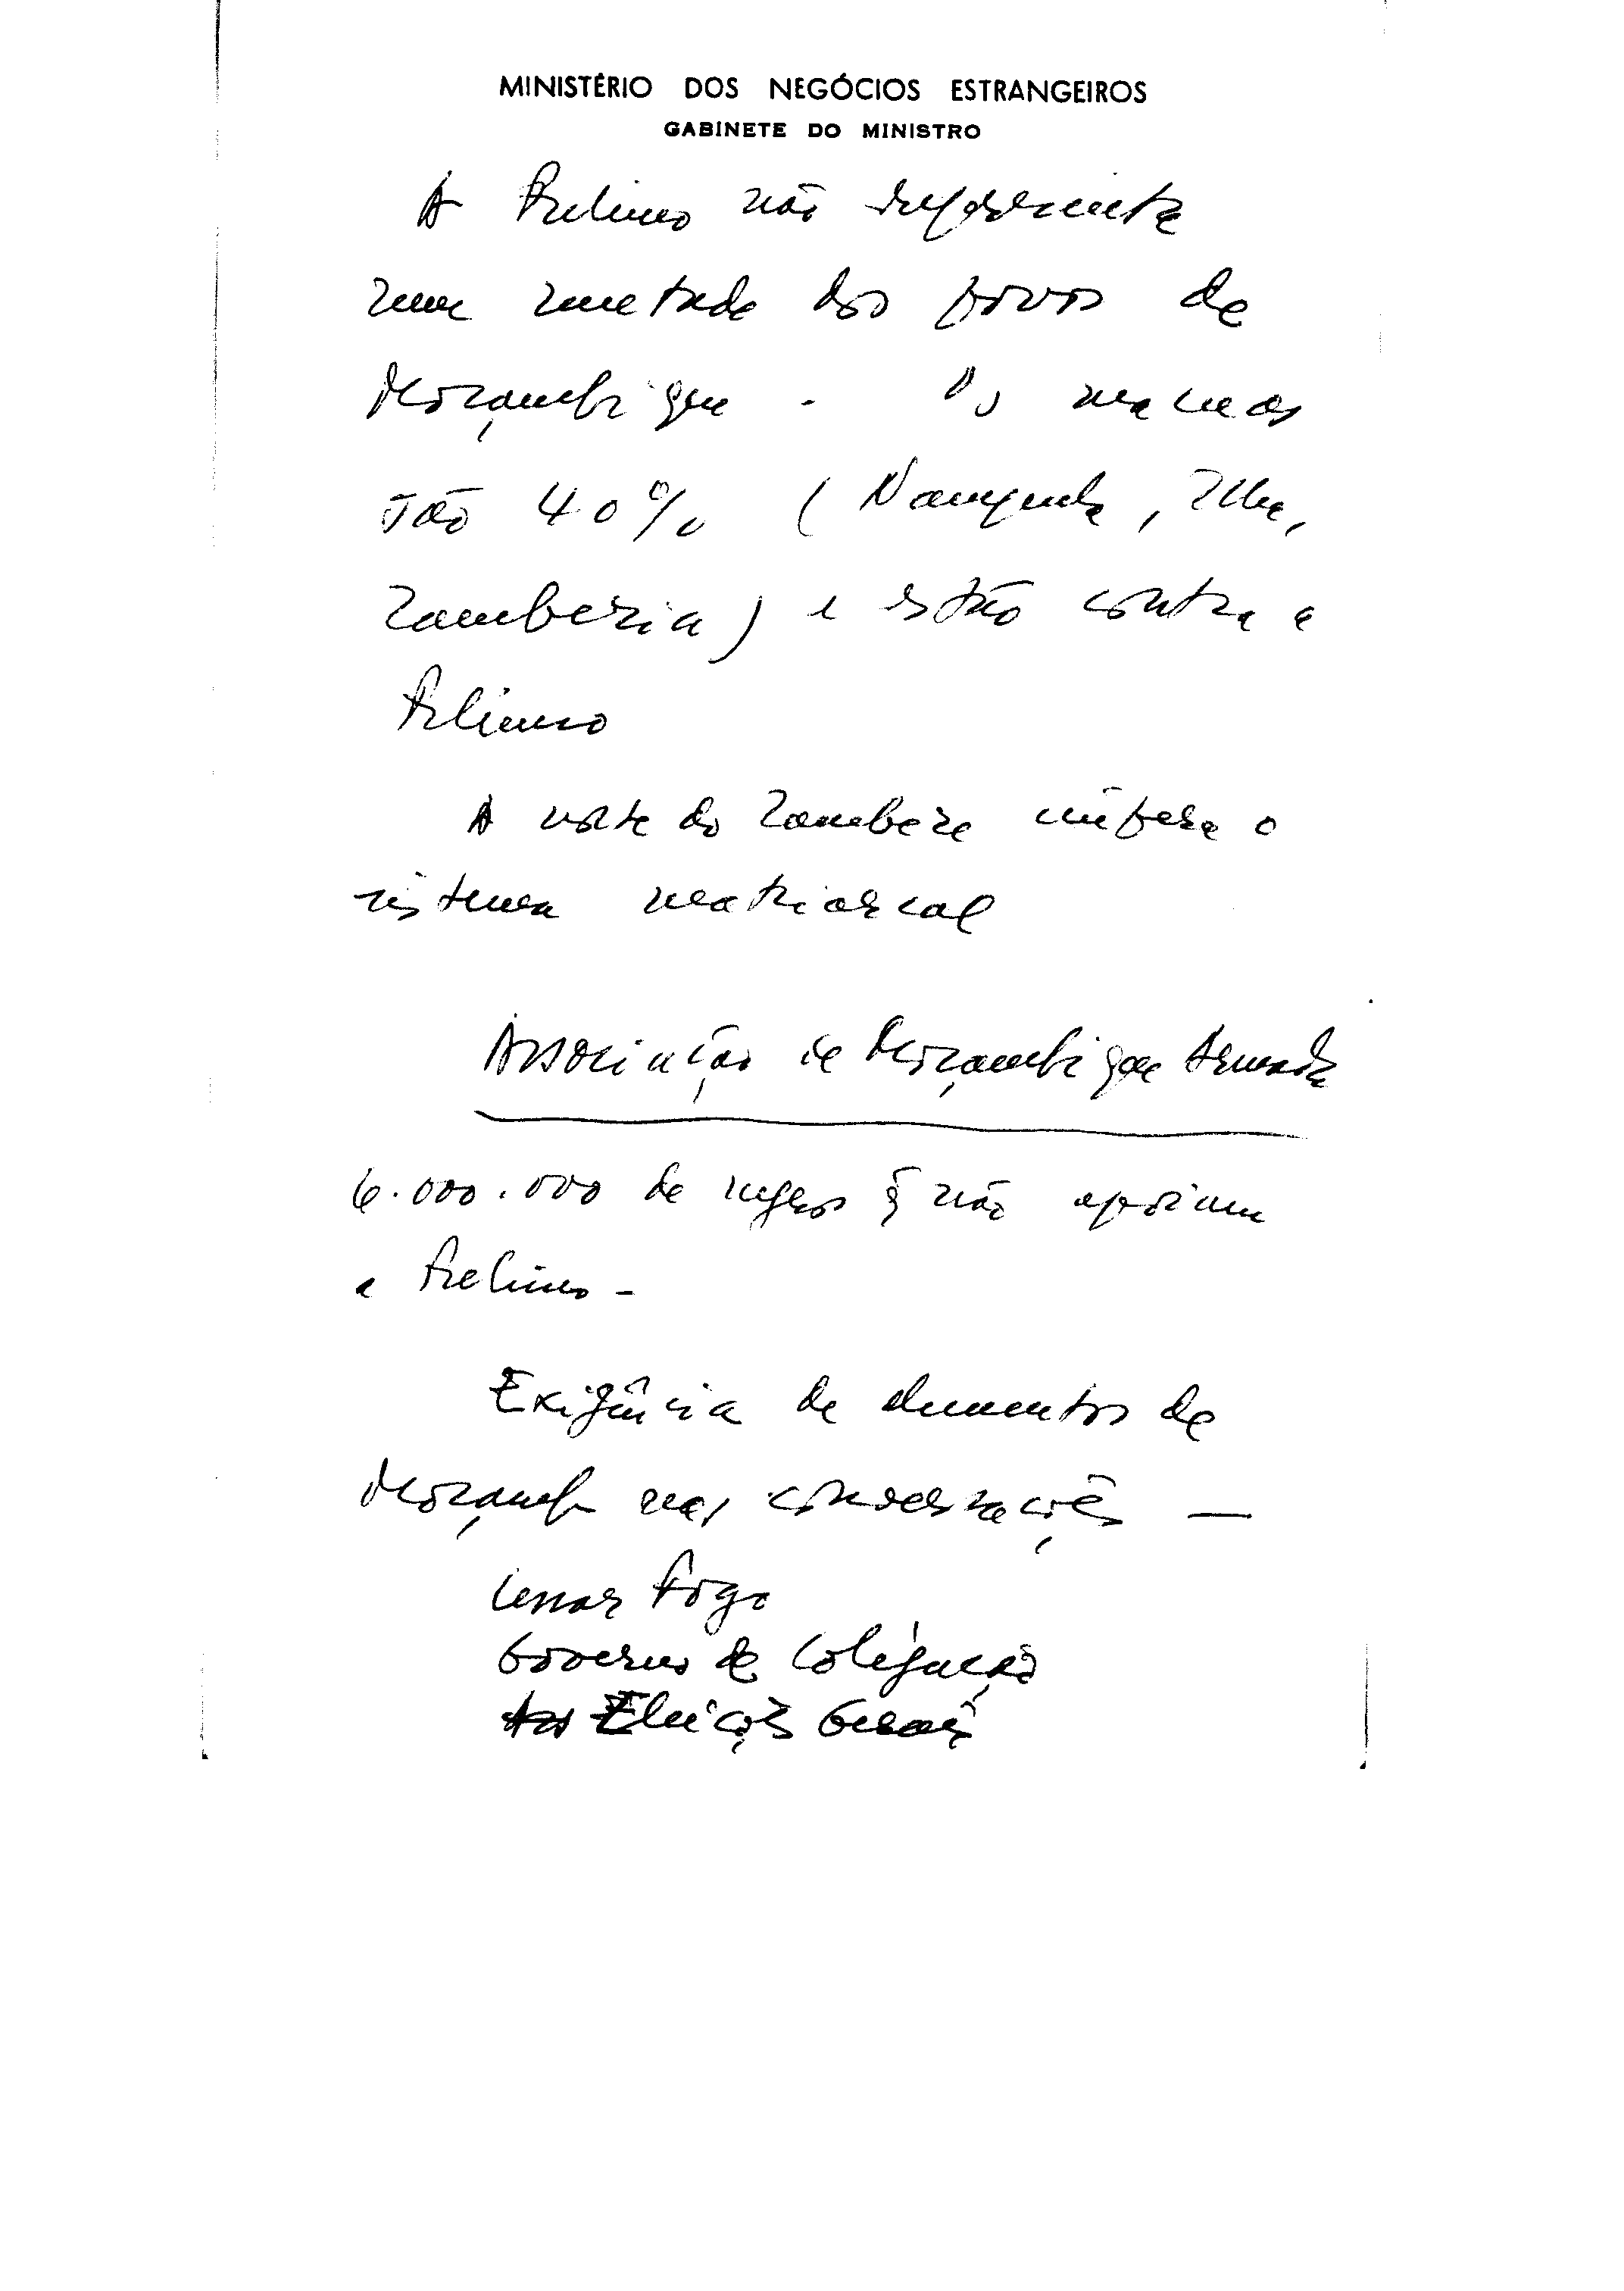 MINISTÉRIO DOS NEGÓCIOS ESTRANGEIROS
GABINETE DO MINISTRO
A Frelimo não representa
nem metade dos povos de
Moçambique. Os macuas
são 40% (Nampula, Ilha,
Zambezia) e estão contra a
Frelimo
A norte do Zambeze impera o
sistema matriarcal
Associação de Moçambique Armada
6.000.000 de negros q não apoiam
a Frelimo -
Exigência de elementos de
Moçamb nas conversações —
Cessar fogo
Governo de Coligação
Eleições Gerais